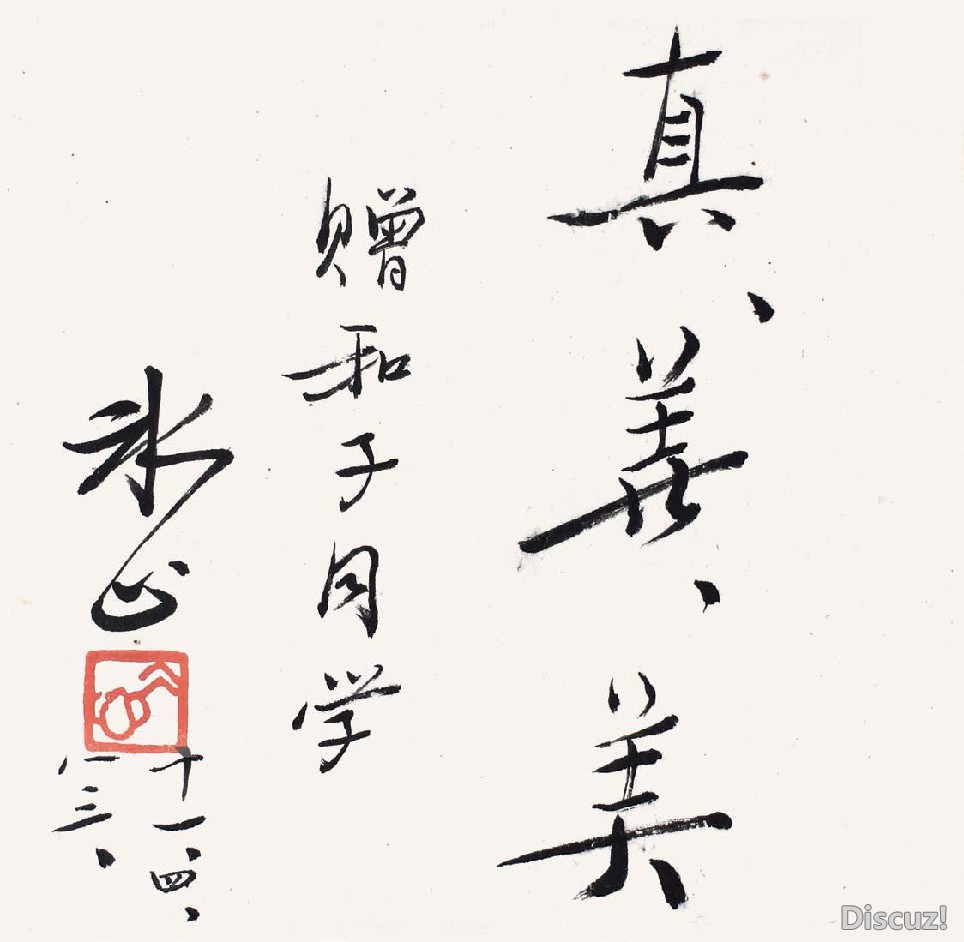 真、善、美
赠和子同学
冰心
十一、四、
八三、
Discuz!